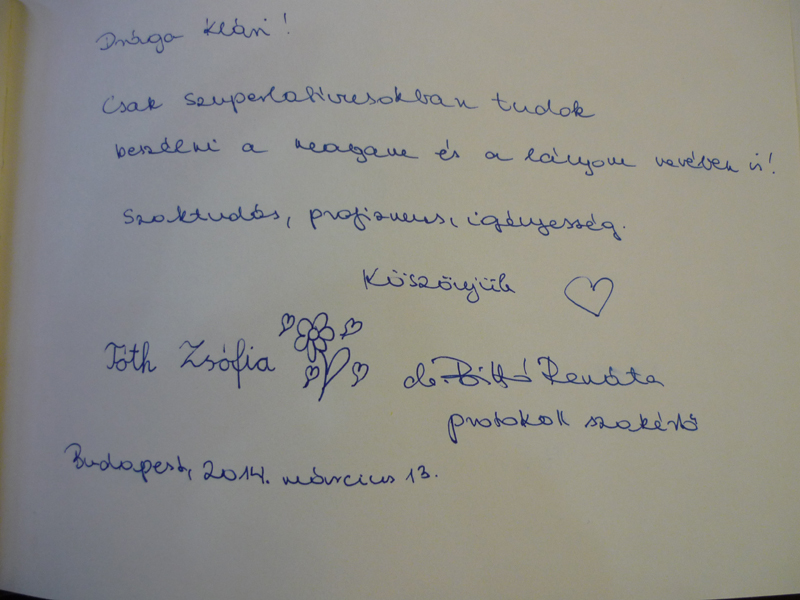 Drága Klári!
Csak szuperlatívusokban tudok
beszélni a magam és a lányom nevében is!
Szaktudás, profizmus, igényesség.
Köszönjük
Tóth Zsófia
dr. Renáta
protokoll szakértő
Budapest, 2014. március 13.